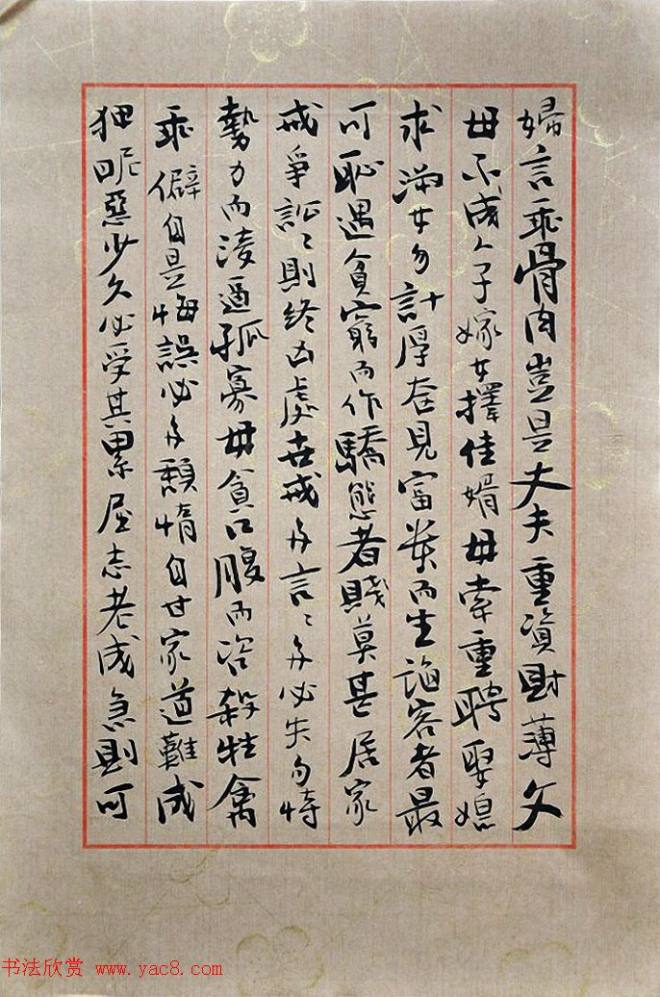 婦言乖骨肉豈是丈夫重資財薄父
母不成人子嫁女擇佳婿毋索重聘娶媳
求淑女勿計厚奁見富業而生諂容者最
可恥遇貧窮而作驕態者賤莫甚居家
戒爭訟〻則終凶處世戒多言〻多必失勿恃
勢力而淩逼孤寡毋貪口腹而恣殺牲禽
乖僻自是悔誤必多頹惰自甘家道難成
狎昵惡少久必受其累屈志老成急則可
书法欣赏 www.yac8.com